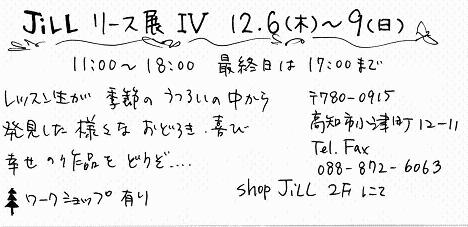 JiLL リース展 Ⅳ 12.6(木)〜9(日)
11:00〜18:00 最終日は 17:00まで
レッスン生が 季節の うつろいの中から
発見した 様々な おどろき、喜び
幸せ の 作品を どうぞ....
ワークショップ 有り
〒780-0915
高知市小津町 12-11
Tel. Fax
088-872-6063
shop JiLL 2Fにて